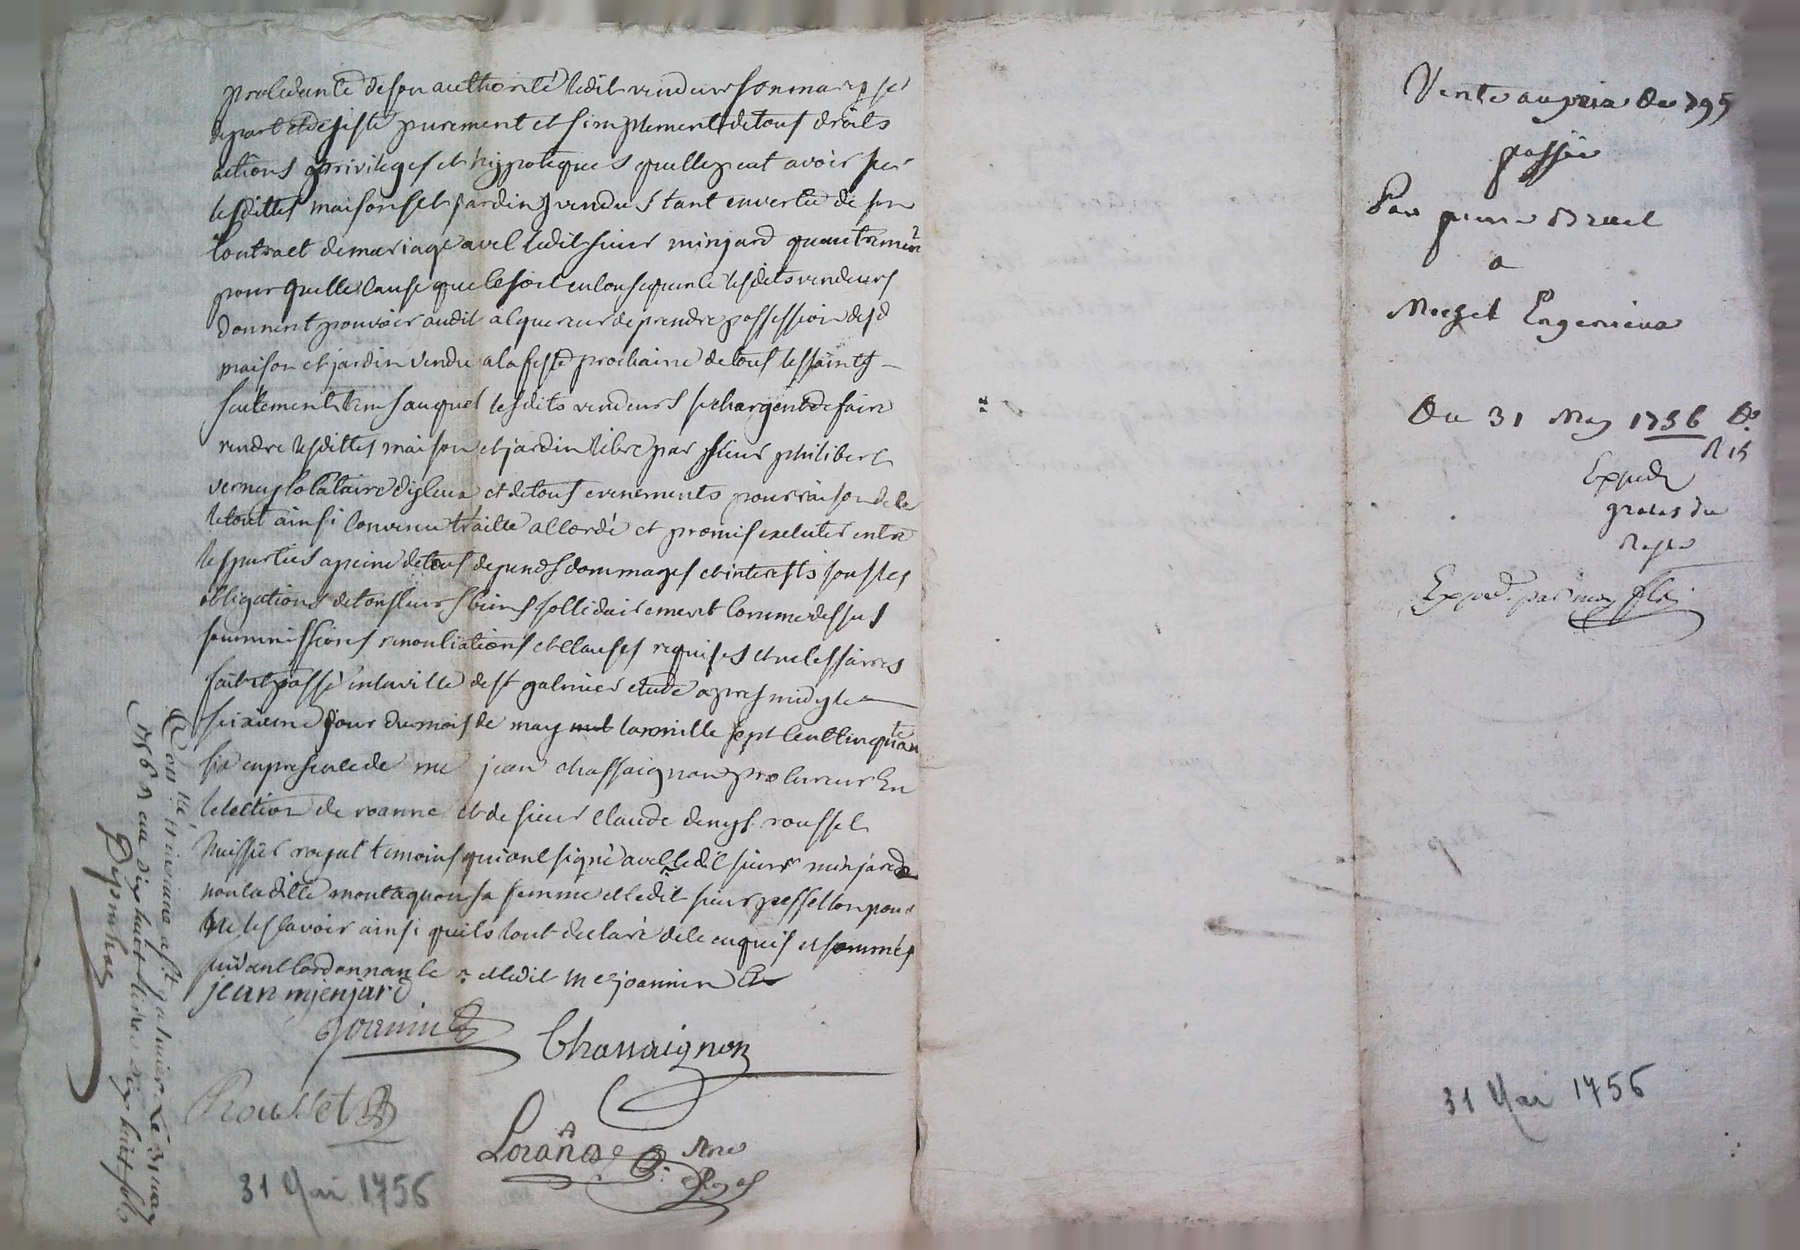 procedente de son authorité ledit vendeur son mary se
depart et desiste purement et simplement de tous droits
actions privileges et hyppoteques quelle peut avoir sur
lesdittes maisons et jardin vendus tant en vertu de son
contract de mariage avec ledit sieur minjard quautremt
pour quelle cause que ce soit en consequence lesdits vendeurs
donnent pouvoir audit acquereur de prendre possession desd
maison et jardin vendu a la feste prochaine de tous les saints
seulement tems auquel lesdits vendeurs se chargent de faire
rendre lesdittes maison et jardin libre par sieur philibert
verney locataire dicleux et de tous evenements pour raison de ce
le tout ainsi convenu traitté accordé et promis executer entre
les parties a peine de tous depends dommages et interests sous les
obligations de tous leurs biens sollidairement comme dessus
soumissions renonciations et clauses requises et necessaires
fait et passé en la ville de st galmier etude apres midy le
seizieme jour du mois de may lan mille sept cent cinquante
six en presence de me jean chassaignon procureur en
lelection de roanne et de sieur claude denys roussel
huissier royal temoins qui ont signé avec ledit sieur minjard
non laditte montaquon sa femme et ledit sieur pesselon pour
ne le scavoir ainsi quils lont declaré de ce enquis et sommés
suivant lordonnance et ledit me joannin
jean mjenjard
Joannin
Chassaignon
Roussel
31 Mai 1756
Con lé, a st galmier Le 31 may
1756 R dix huit livres dix huit sols
Vente au prix de 795
passée
Par
a
Du 31 May 1756
R 15
Expedié
Expedié par moy
31 Mai 1756